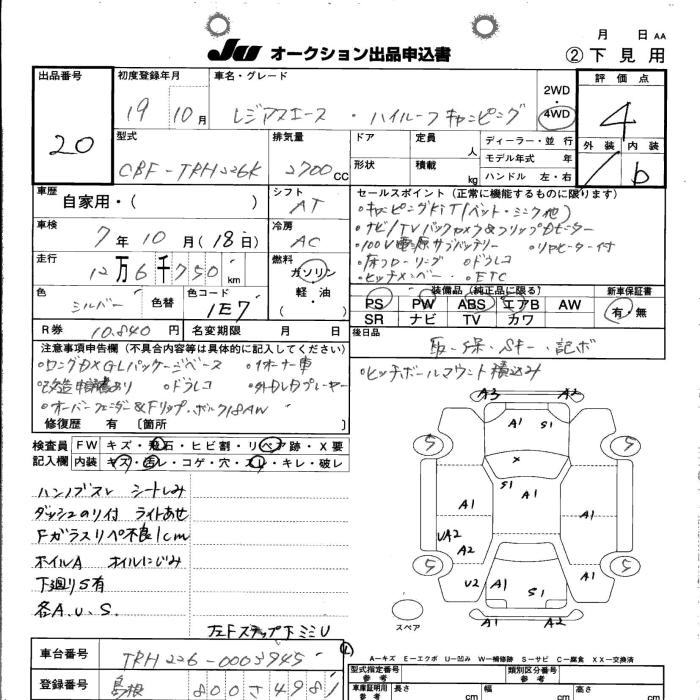 月 日 AA
JU オークション出品申込書 ②下見用
出品番号 初度登録年月 車名・グレード 2WD・4WD 評価点
20 19 10月 レジアスエース・ハイルーフキャンピング 4
型式 排気量 ドア 定員 人 ディーラー・並行 外装 内装
CBF-TRH226K 2700cc 形状 積載 kg モデル年式 年 ハンドル 左・右 b
車歴 自家用・( ) シフト AT セールスポイント(正常に機能するものに限ります)
車検 7年10月(18日) 冷房 AC
・キャンピングKiT(ベット・ミニク他)
・ナビ/TV バックカメラ&フリップダモニター
・100V電源サブバッテリー ・リヤヒーター付
・床フローリング ・ドラレコ
・ヒッチメンバー ・ETC
走行 12万6千750km 燃料 ガソリン・軽・油( )
色 シルバー 色替 色コード 1E7
装備品(純正品に限る) 新車保証書
PS PW ABS エアB AW 有・無
SR ナビ TV カワ
R券 10.840円 名変期限 月 日
後日品 取・保・Sキー・記ボ
・ヒッチボールマウント積込み
注意事項申告欄(不具合内容等は具体的に記入してください)
・ロングDXGLパッケージベース ・1オーナー車
・改造申請あり ・ドラレコ ・外DVDプレーヤー
・オーバーフェンダー&Fリップ、ボルク18AW
修復歴 有 [箇所
検査員記入欄 FW キズ・飛石・ヒビ割・リペア跡・X要
内装 キズ・汚レ・コゲ・穴・スレ・キレ・破レ
ハンドブスレ シートしみ
ダッシュのり付 ライトあせ
Fガラスリペ不良1cm
ホイルA オイルにじみ
下廻りS有
各A.U.S.
左Fステップ下ミミU
A3 A2
A1 S1
S S
X
S1 A1
A1 A1
UA2
A2
S S
U2 A1 S1 A1
A1 A2
スペア
A－キズ E－エクボ U－凹み W－補修跡 S－サビ C－腐食 XX－交換済
車台番号 TRH226-0003945
登録番号 島根 800 さ 4981
型式指定番号 参考 類別区分番号 参考
車庫証明用 参考 長さ cm 幅 cm 高さ cm